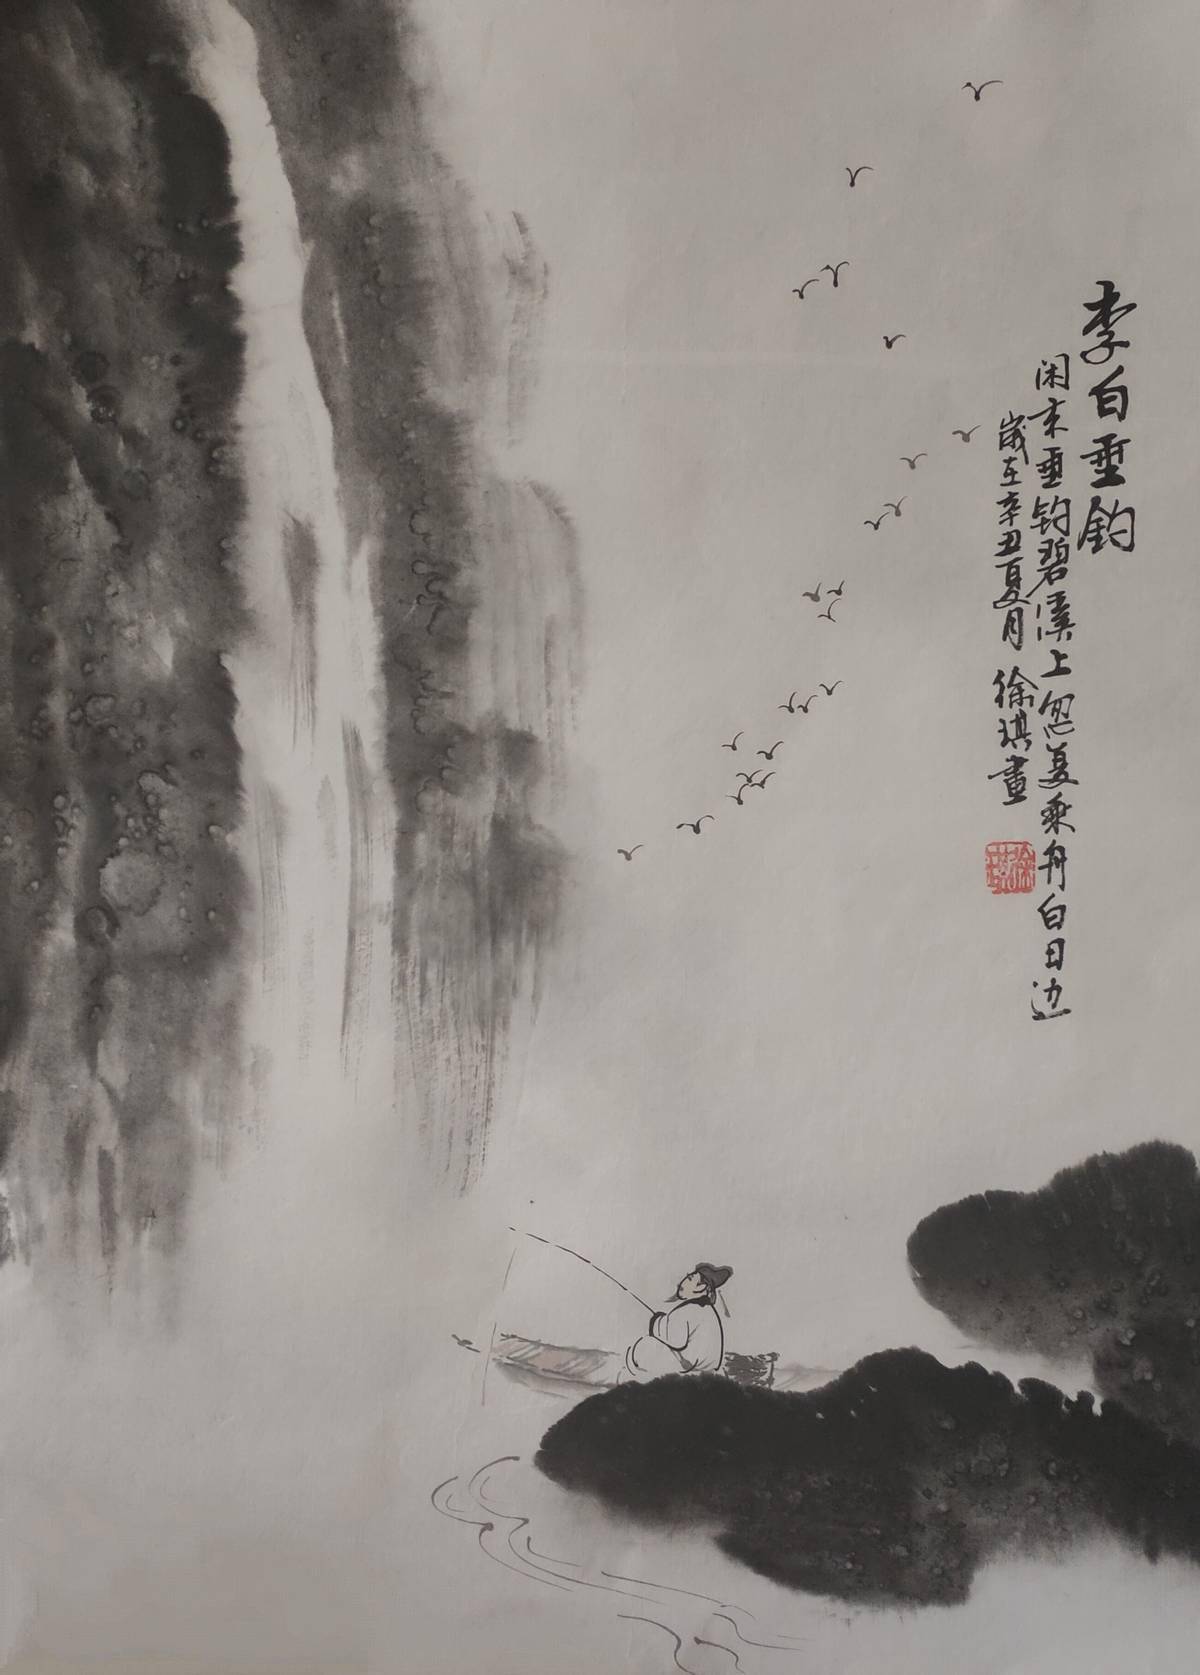 李白垂钓
闲来垂钓碧溪上忽复乘舟白日边
岁在辛丑夏月 徐琪畫
徐琪